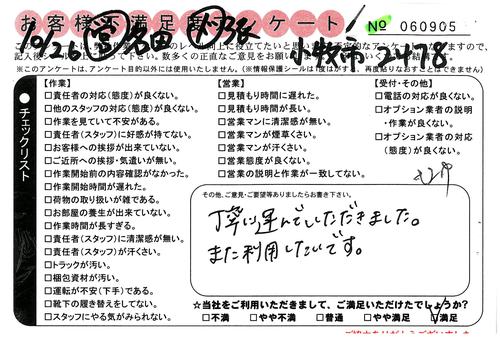 お客様不満足度アンケート
№ 060905
10/26 小牧市 2478
※このアンケートは、アンケート目的以外には使用いたしません。(※情報保護シールは1度はがすと、再度貼りなおすことはできません)
チェックリスト
【作業】
□責任者の対応(態度)が良くない。
□他のスタッフの対応(態度)が良くない。
□作業を見ていて不安がある。
□責任者(スタッフ)に好感が持てない。
□お客様への挨拶が出来ていない。
□ご近所への挨拶・気遣いが無い。
□作業開始前の内容確認がなかった。
□作業開始時間が遅れた。
□荷物の取り扱いが雑である。
□お部屋の養生が出来ていない。
□作業時間が長すぎる。
□責任者(スタッフ)に清潔感が無い。
□責任者(スタッフ)が汗くさい。
□トラックが汚い。
□梱包資材が汚い。
□運転が不安(下手)である。
□靴下の履き替えをしていない。
□スタッフにやる気がみられない。
【営業】
□見積もり時間に遅れた。
□見積もり時間が長い。
□営業マンに清潔感が無い。
□営業マンが煙草くさい。
□営業マンが汗くさい。
□営業態度が良くない。
□営業の説明と作業が一致してない。
【受付・その他】
□電話の対応が良くない。
□オプション業者の説明
・作業が良くない。
□オプション業者の対応
(態度)が良くない。
その他、ご意見・ご要望等ありましたらお書き下さい。
丁寧に運んでいただきました。
また利用したいです。
☆当社をご利用いただきまして、ご満足いただけたでしょうか?
□不満 □やや不満 □普通 □やや満足 □満足